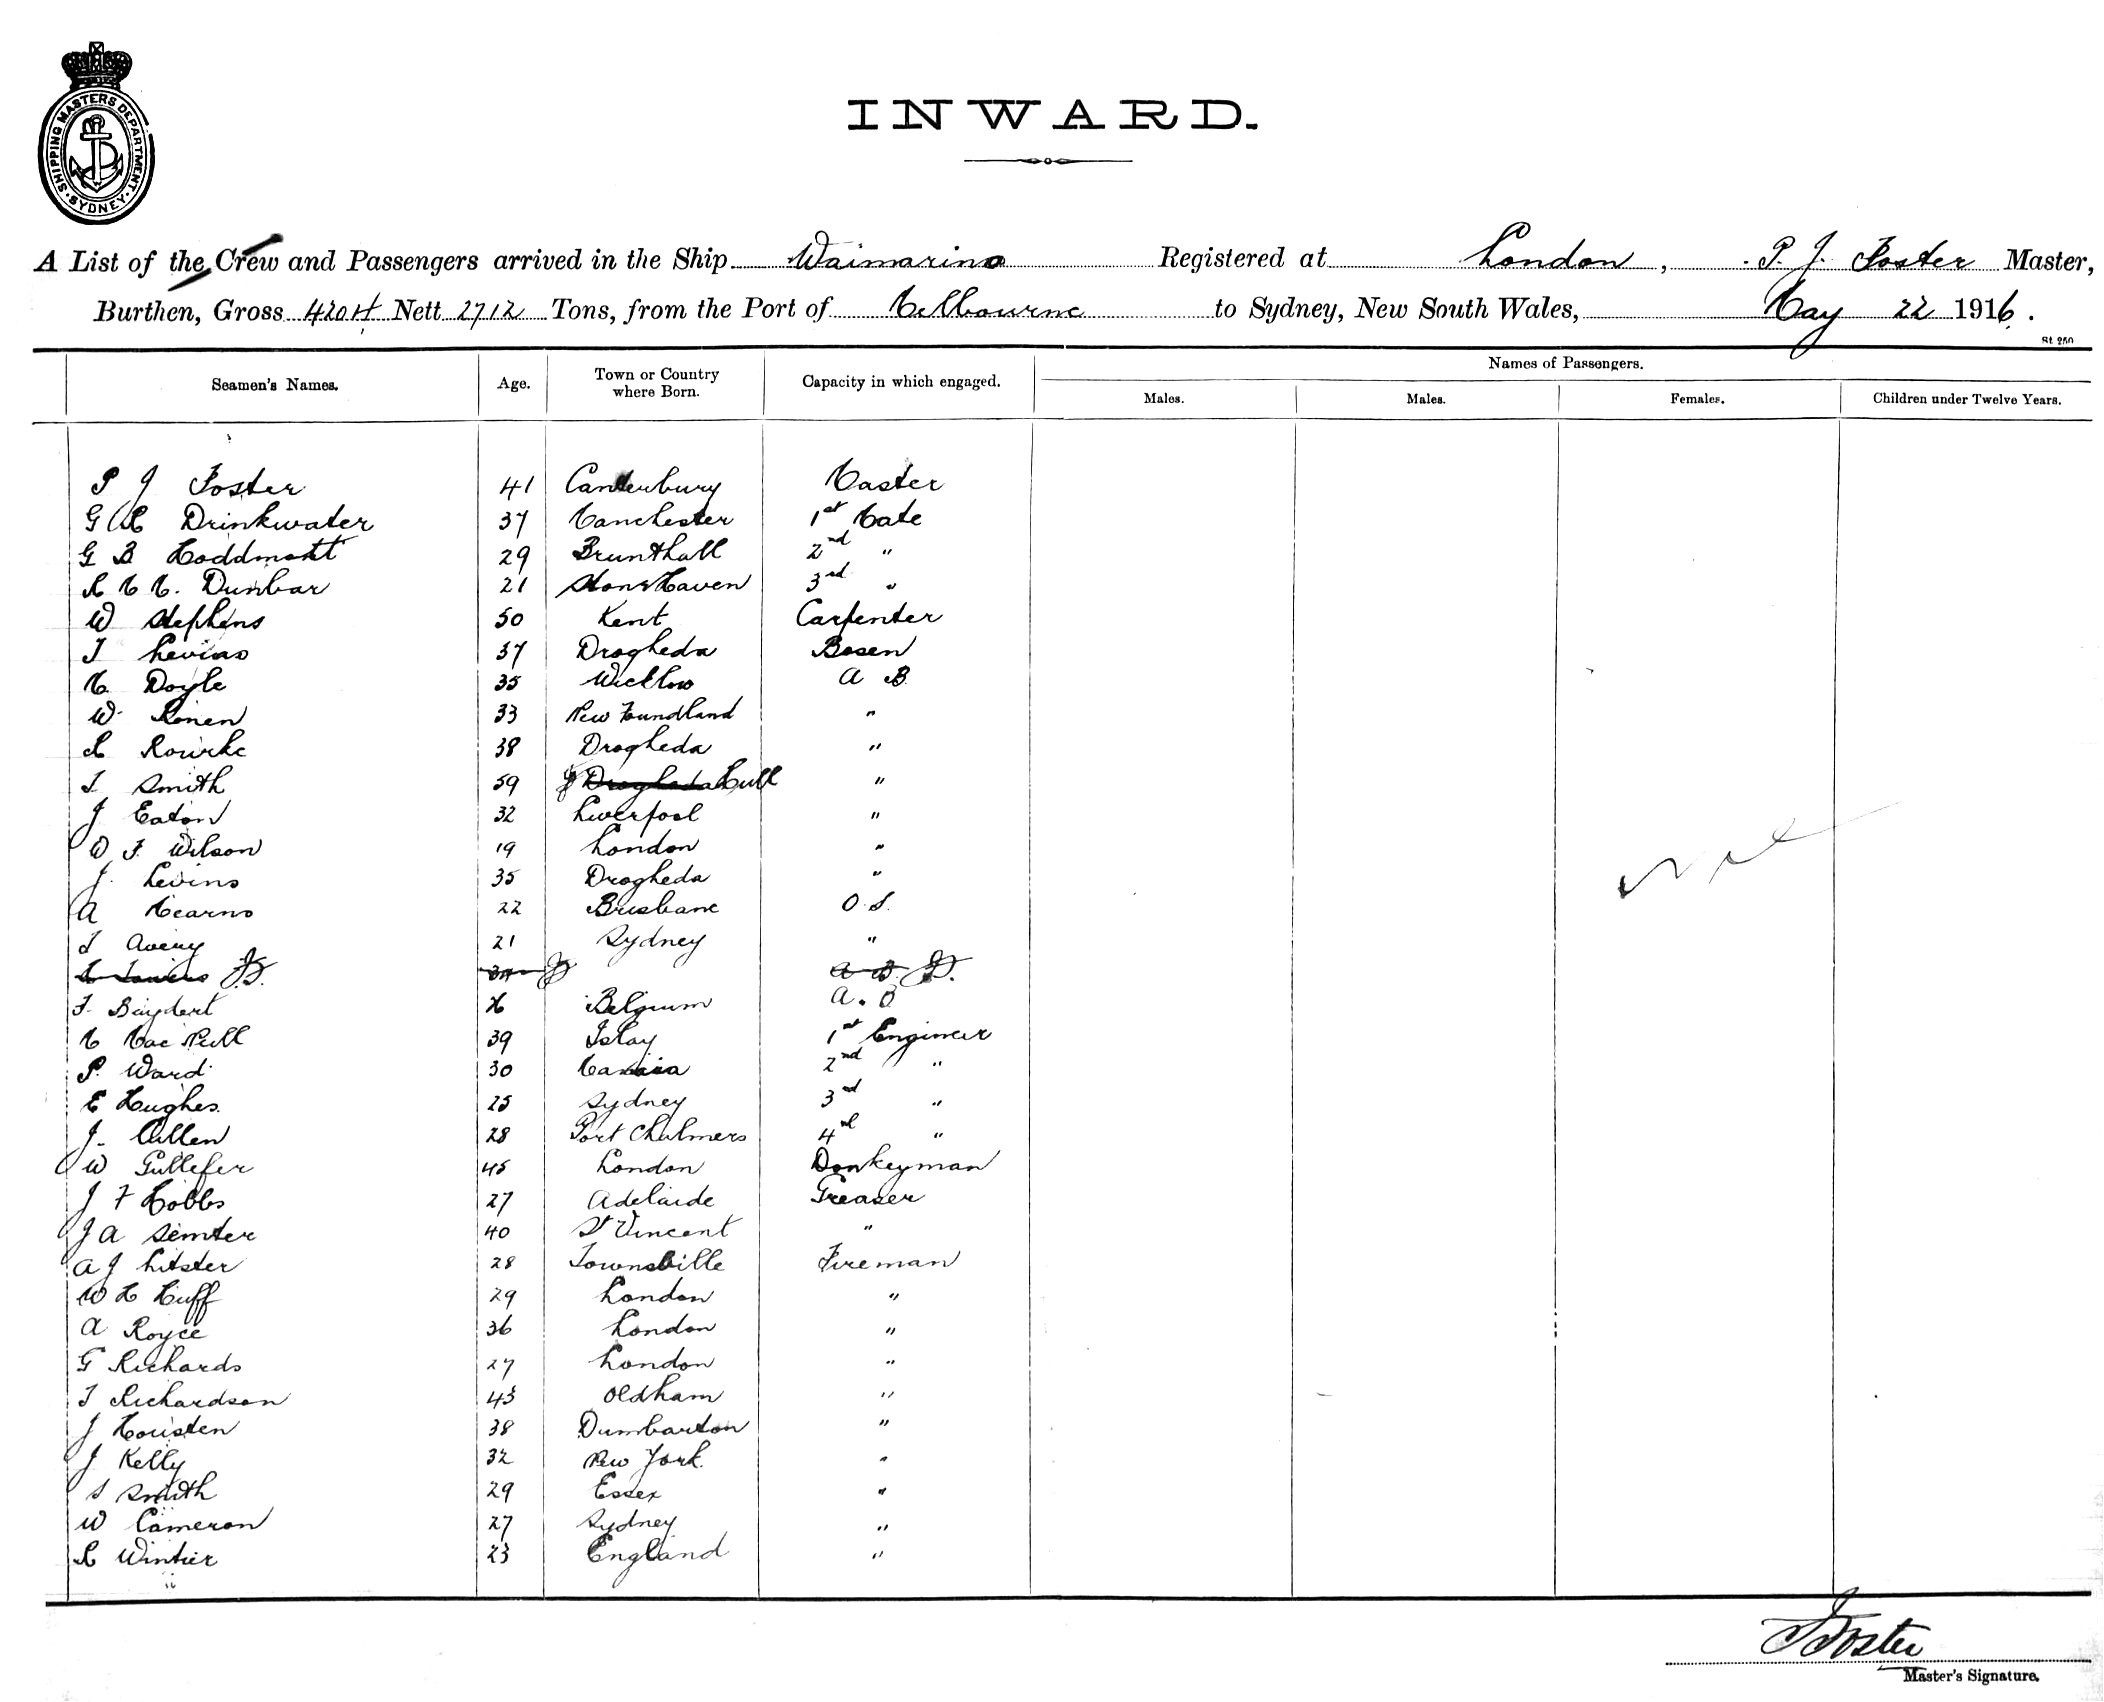 SHIPPING MASTERS DEPARTMENT · SYDNEY ·
INWARD.
A List of the Crew and Passengers arrived in the Ship Waimarino Registered at London, P. J. Foster Master,
Burthen, Gross 4204 Nett 2712 Tons, from the Port of Melbourne to Sydney, New South Wales, May 22 1916.
St 250
Names of Passengers.
Seamen's Names. Age. Town or Country where Born. Capacity in which engaged. Males. Males. Females. Children under Twelve Years.
P J Foster 41 Canterbury Master
G H Drinkwater 37 Manchester 1st Mate
G B 29 2nd "
R M M. Dunbar 21 StoneHaven 3rd "
W Stephens 50 Kent Carpenter
T Levins 37 Drogheda Bosen
M Doyle 35 Wicklow A B
W Ronen 33 New Foundland "
R Rourke 38 Drogheda "
T Smith 59 Drogheda Hull "
J Eaton 32 Liverpool "
W F Wilson 19 London "
J. Levins 35 Drogheda "
A Mearns 22 Brisbane O.S.
T Avery 21 Sydney "
A B
F. 26 Belgium A. B
M Mac Neill 39 Islay 1st Engineer
P. Ward 30 2nd "
E Hughes. 25 Sydney 3rd "
J. Allen 28 Port Chalmers 4th "
W Gullefer 45 London Donkeyman
J F Hobbs 27 Adelaide Greaser
J A Semter 40 St Vincent "
A J Litster 28 Townsville Fireman
W H Huff 29 London "
A Royce 36 London "
G Richards 27 London "
T Richardson 43 Oldham "
J Housten 38 Dumbarton "
J Kelly 32 New York. "
S Smith 29 Essex "
W Cameron 27 Sydney "
R Wintier 23 England "
Nil
Foster
Master's Signature.